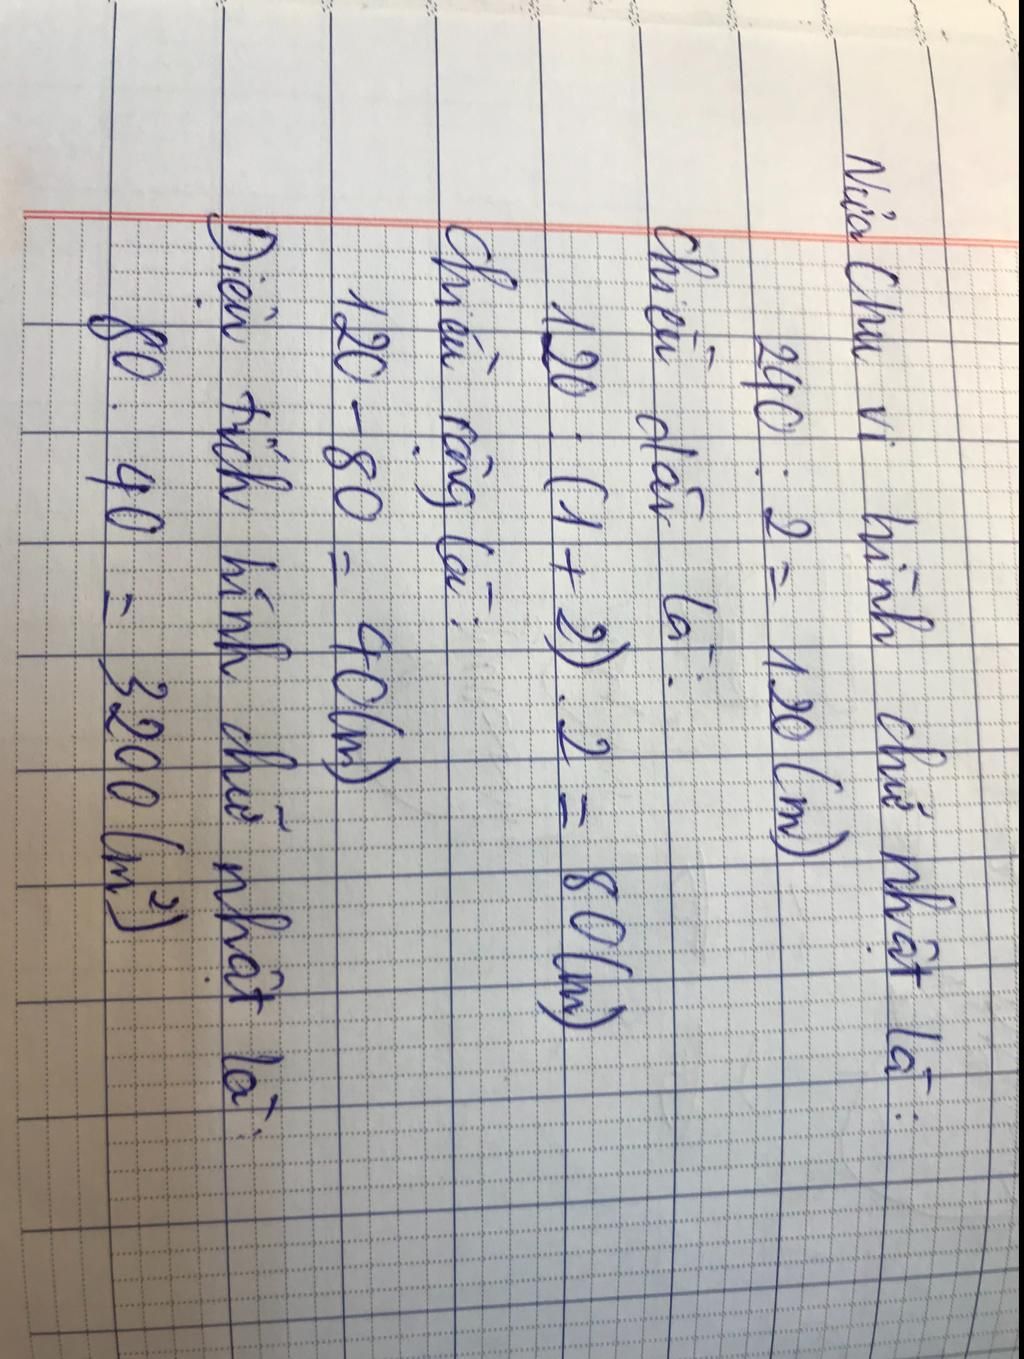 Nửa Chu vi hình chữ nhật là:
240 : 2 = 120 (m)
Chiều dài là:
120 : (1 + 2) . 2 = 80 (m)
Chiều rộng là:
120 - 80 = 40 (m)
Diện tích hình chữ nhật là:
80 . 40 = 3200 (m²)